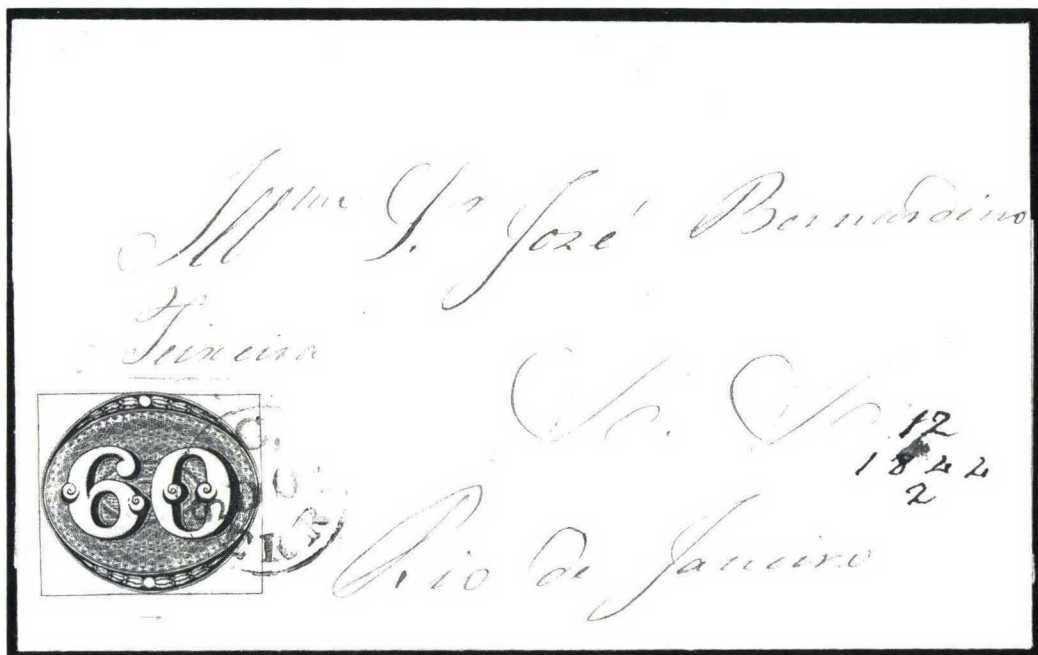 Illmo Sr José Bernardino
Teixeira
60
12
1844
2
Rio de Janeiro